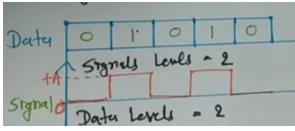 Data 0 1 0 1 0
Signals Levels = 2
+A
Signal 0
Data Levels = 2